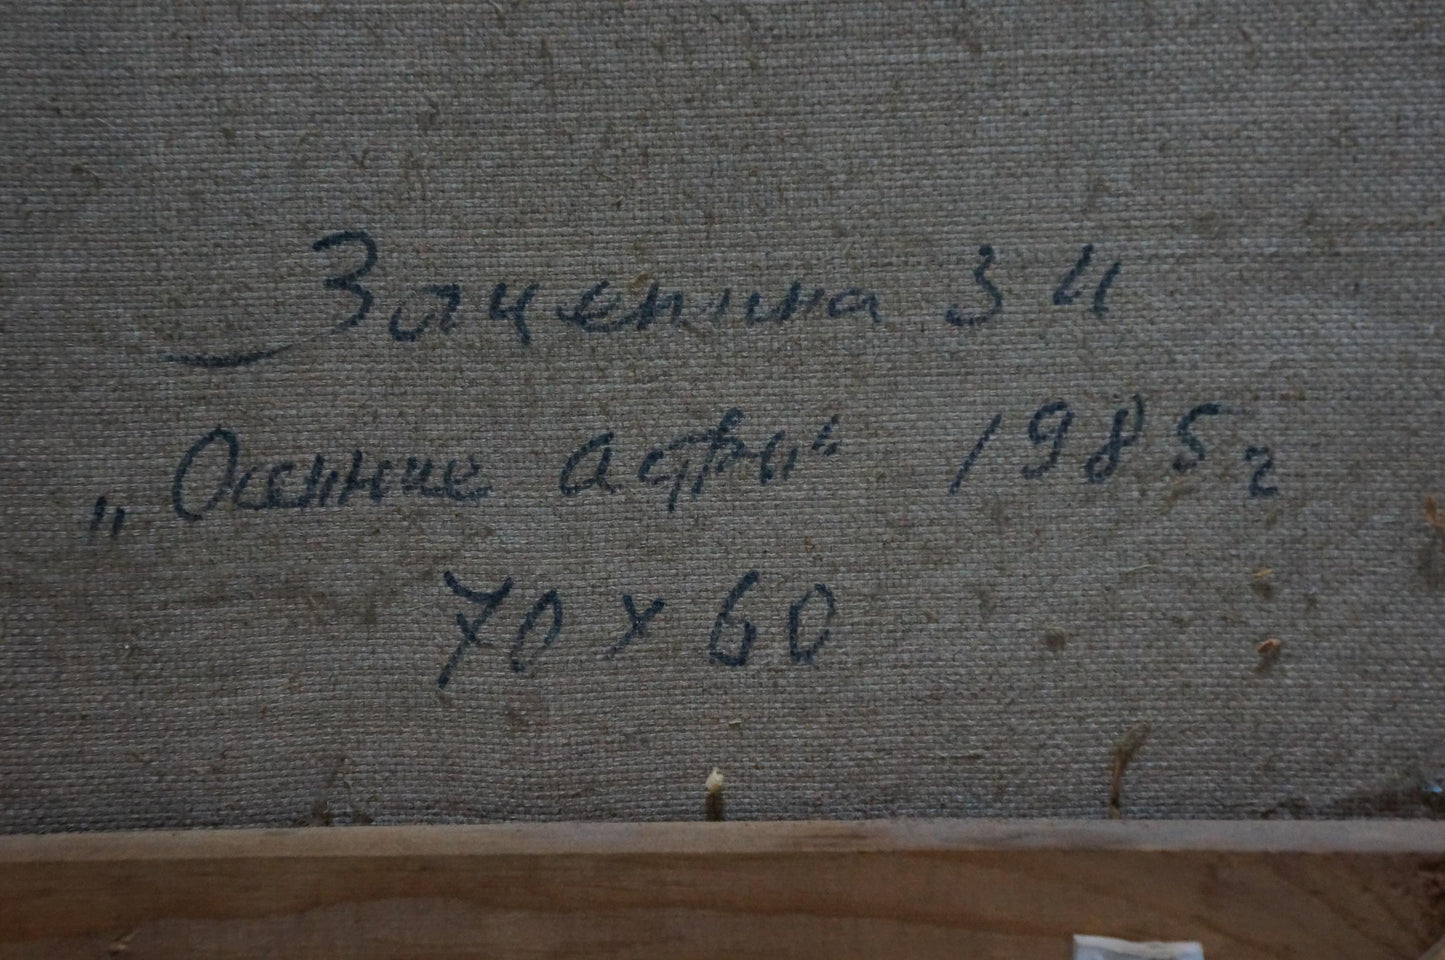 Зацепина З И
„Осенние астры“ 1985 г
70 x 60